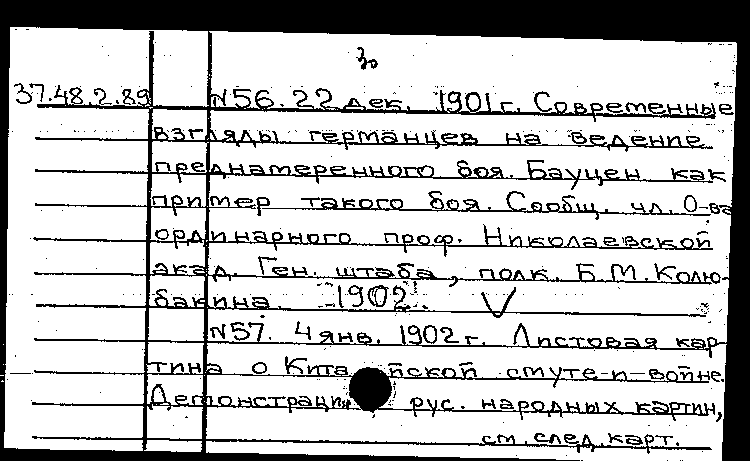 30
37.48.2.89 N56. 22 дек. 1901 г. Современные
взгляды германцев на ведение
преднамеренного боя. Бауцен как
пример такого боя. Сообщ. чл. О-ва
ординарного проф. Николаевской
акад. Ген. штаба, полк. Б.М. Колю-
бакина 1902. V
N57. 4 янв. 1902 г. Листовая кар-
тина о Китайской смуте-и-войне.
Демонстрации рус. народных картин,
см. след. карт.